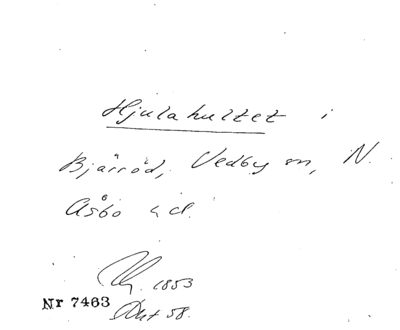 Hjulahultet i
Bjärröd, Vedby sn, N.
Åsbo hd.
1853
Nr 7463
58.